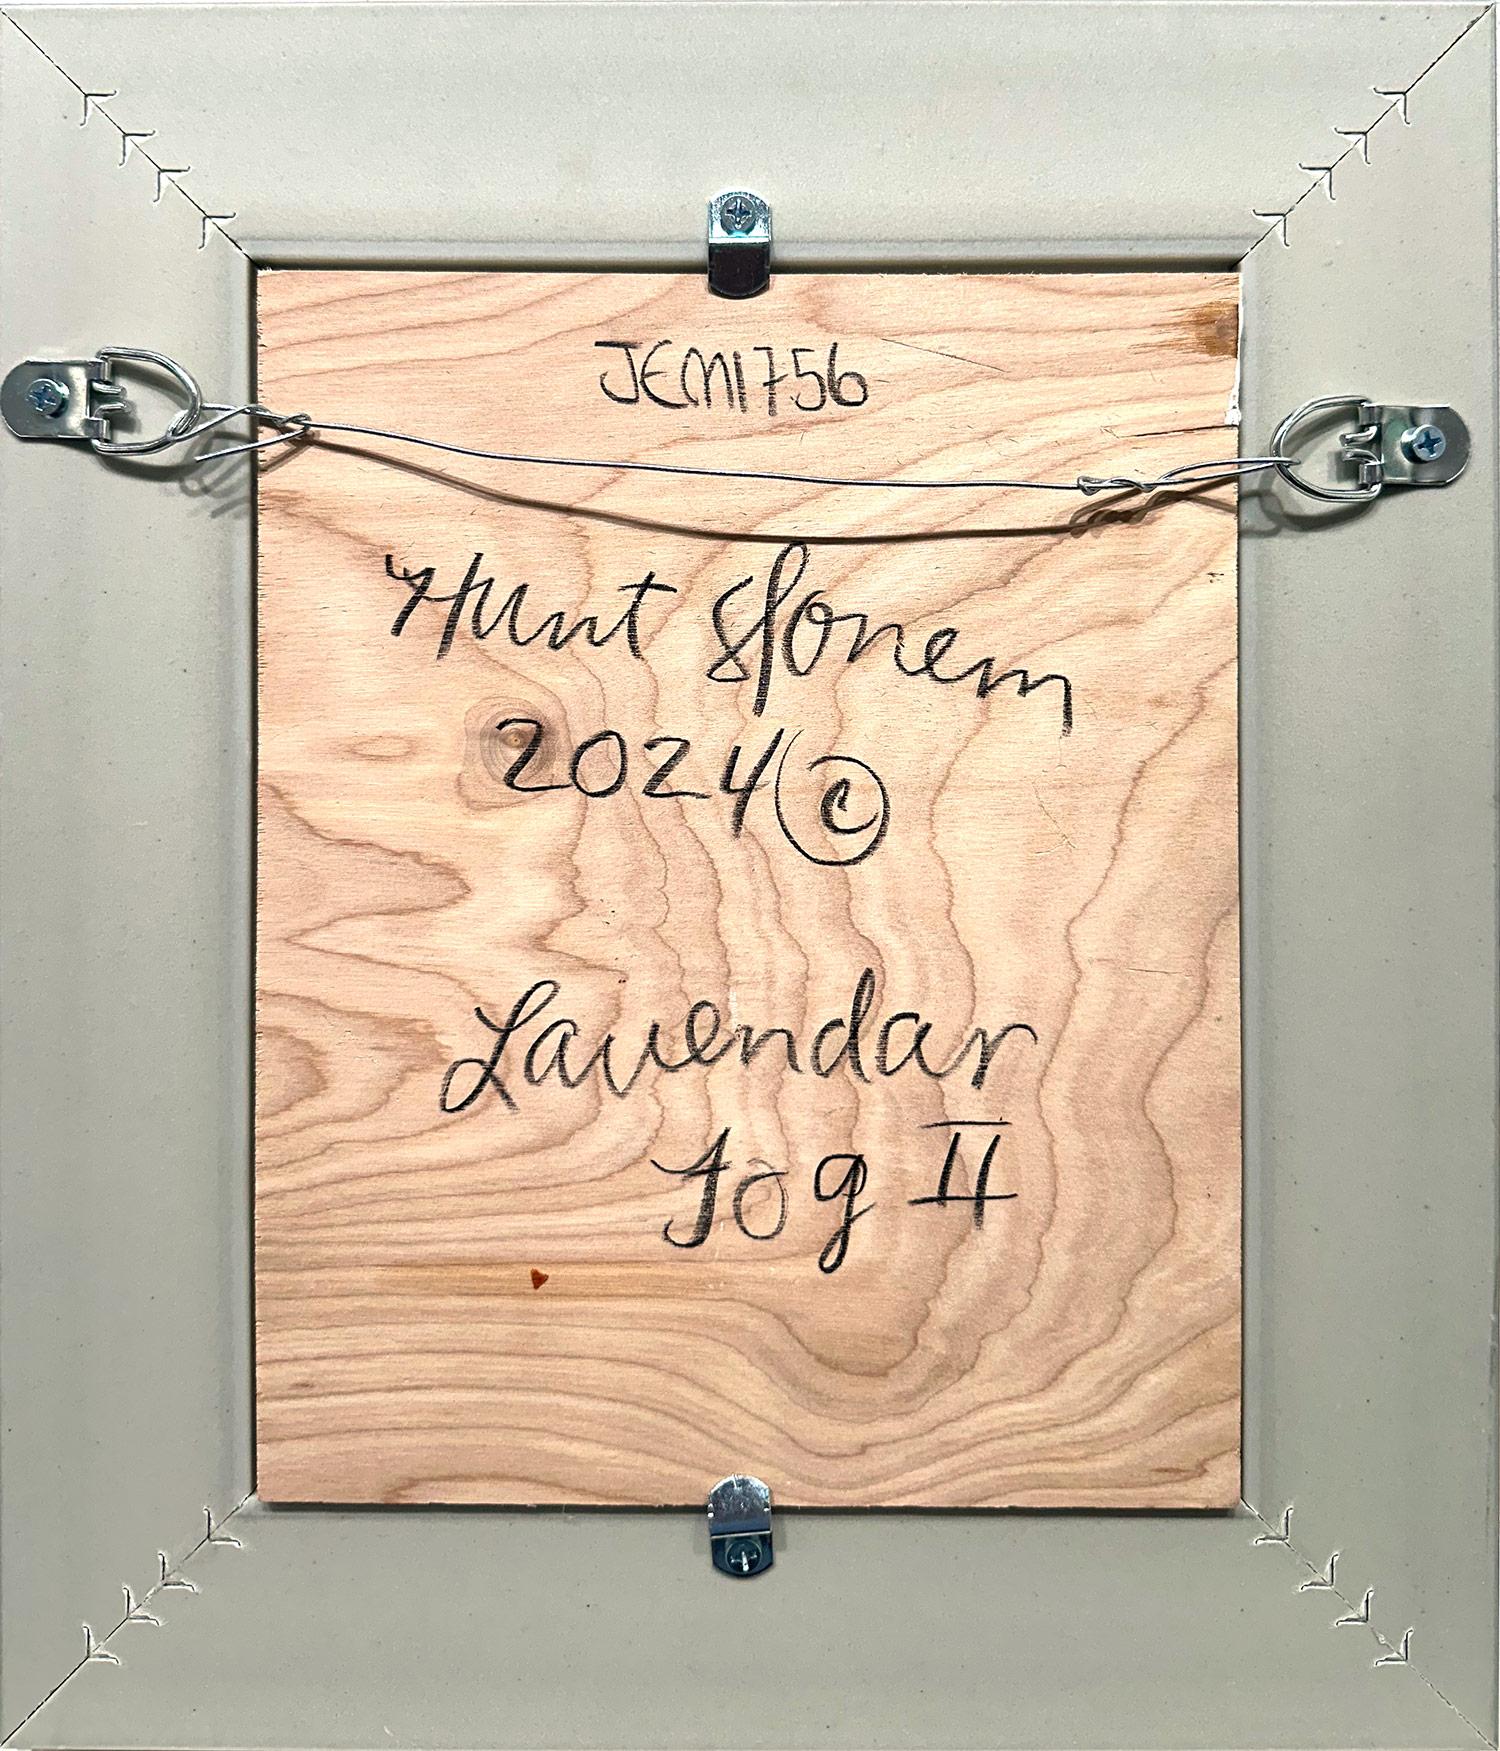 JEM1756
Hunt Slonem
2024 ©
Lavendar
Fog II